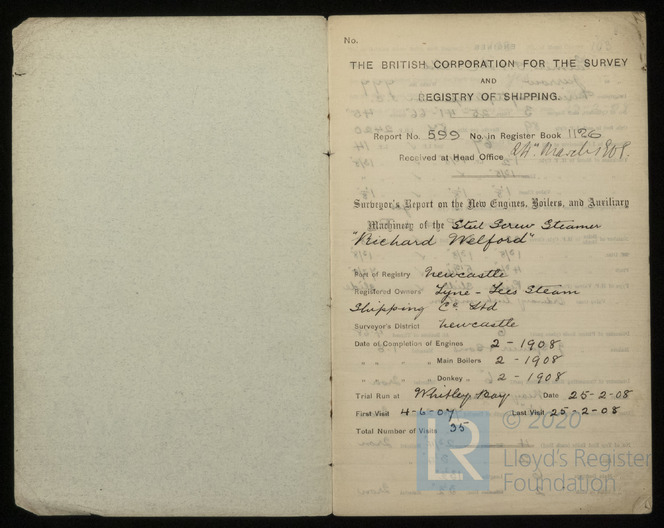 No.
THE BRITISH CORPORATION FOR THE SURVEY
AND
REGISTRY OF SHIPPING.
Report No. 599 No. in Register Book 1126
Received at Head Office March 1908.
Surveyor's Report on the New Engines, Boilers, and Auxiliary
Machinery of the Steel Screw Steamer
"Richard Welford"
Port of Registry Newcastle
Registered Owners Tyne - Tees Steam
Shipping Co. Ltd
Surveyor's District Newcastle
Date of Completion of Engines 2 - 1908
" " " " Main Boilers 2 - 1908
" " " " Donkey " 2 - 1908
Trial Run at Whitley Bay Date 25-2-08
First Visit 4-6-07 Last Visit 25-2-08
Total Number of Visits 35
© 2020
LR
Lloyd's Register
Foundation